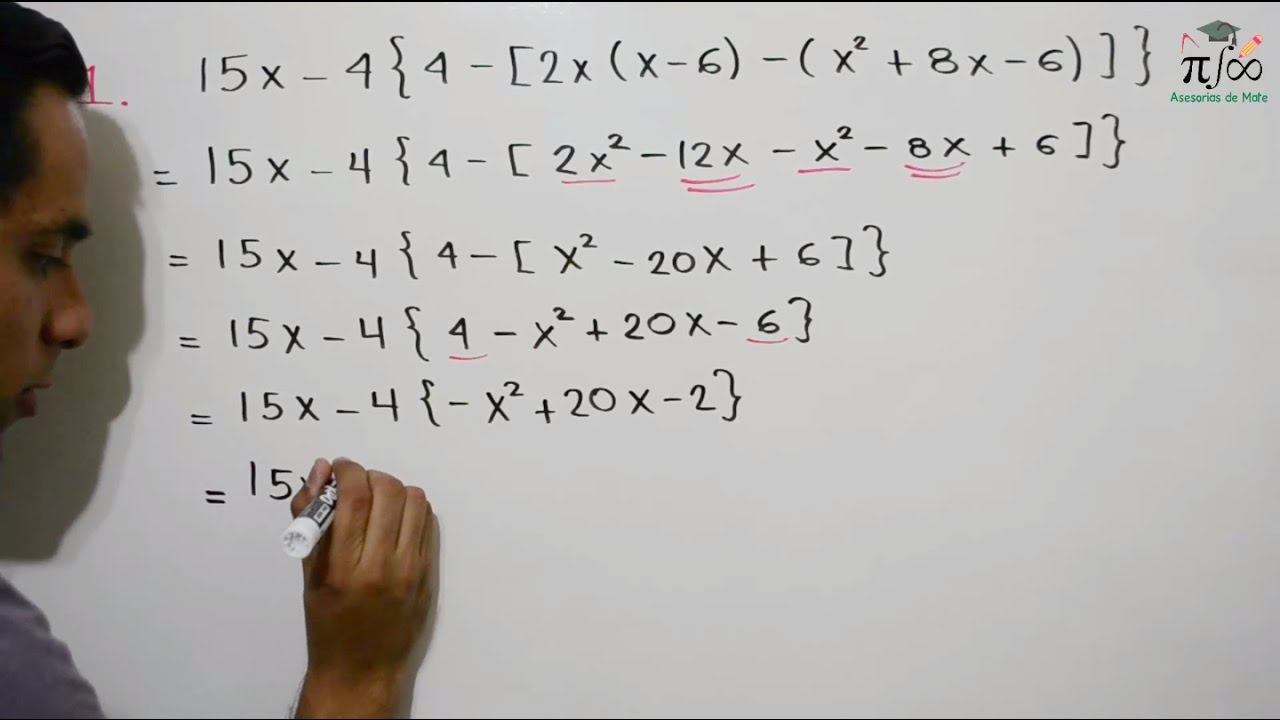 1. 15x - 4{4 - [2x(x-6) - (x² + 8x - 6)]}
= 15x - 4{4 - [2x² - 12x - x² - 8x + 6]}
= 15x - 4{4 - [x² - 20x + 6]}
= 15x - 4{4 - x² + 20x - 6}
= 15x - 4{-x² + 20x - 2}
= 15x
π∫∞
Asesorias de Mate